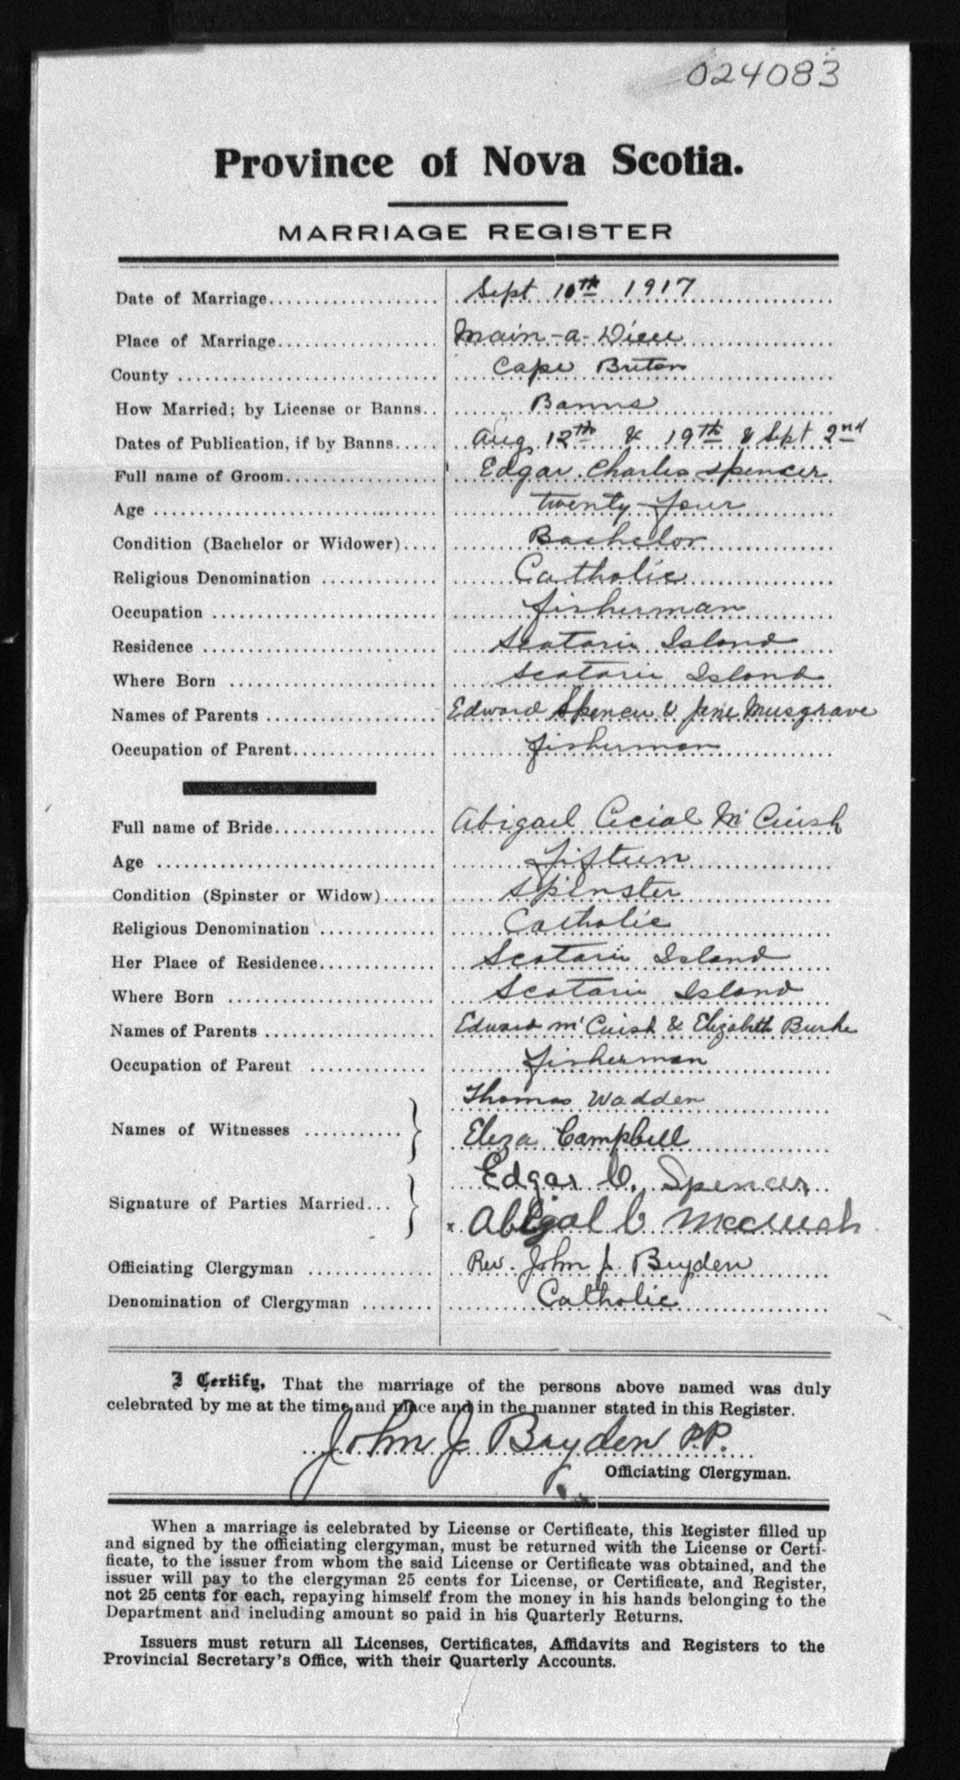 024083
Province of Nova Scotia.
MARRIAGE REGISTER
Date of Marriage................... Sept 10th 1917
Place of Marriage.................. Main-a-Dieu
County ........................... Cape Briton
How Married; by License or Banns.. Banns
Dates of Publication, if by Banns..... Aug 12th & 19th & Sept 2nd
Full name of Groom................. Edgar Charles Spencer
Age ............................. twenty-four
Condition (Bachelor or Widower).... Bachelor
Religious Denomination ............ Catholic
Occupation ....................... fisherman
Residence ........................ Scatarie Island
Where Born ..................... Scatarie Island
Names of Parents ................. Edward Spencer & Jane Musgrave
Occupation of Parent.............. fisherman
Full name of Bride................ Abigail Cecial Mc Cuish
Age ............................ fifteen
Condition (Spinster or Widow)...... Spinster
Religious Denomination ............ Catholic
Her Place of Residence............ Scatarie Island
Where Born ..................... Scatarie Island
Names of Parents ................. Edward Mc Cuish & Elizabeth Burke
Occupation of Parent ............ fisherman
Thomas Wadden
Names of Witnesses ..........
Eliza Campbell
Edgar C. Spencer
Signature of Parties Married...
x Abigal C Mccuish
Officiating Clergyman ............ Rev. John J. Bryden
Denomination of Clergyman ........ Catholic
I Certify, That the marriage of the persons above named was duly
celebrated by me at the time and place and in the manner stated in this Register.
John J Bryden P.P.
Officiating Clergyman.
When a marriage is celebrated by License or Certificate, this Register filled up
and signed by the officiating clergyman, must be returned with the License or Certi-
ficate, to the issuer from whom the said License or Certificate was obtained, and the
issuer will pay to the clergyman 25 cents for License, or Certificate, and Register,
not 25 cents for each, repaying himself from the money in his hands belonging to the
Department and including amount so paid in his Quarterly Returns.
Issuers must return all Licenses, Certificates, Affidavits and Registers to the
Provincial Secretary's Office, with their Quarterly Accounts.